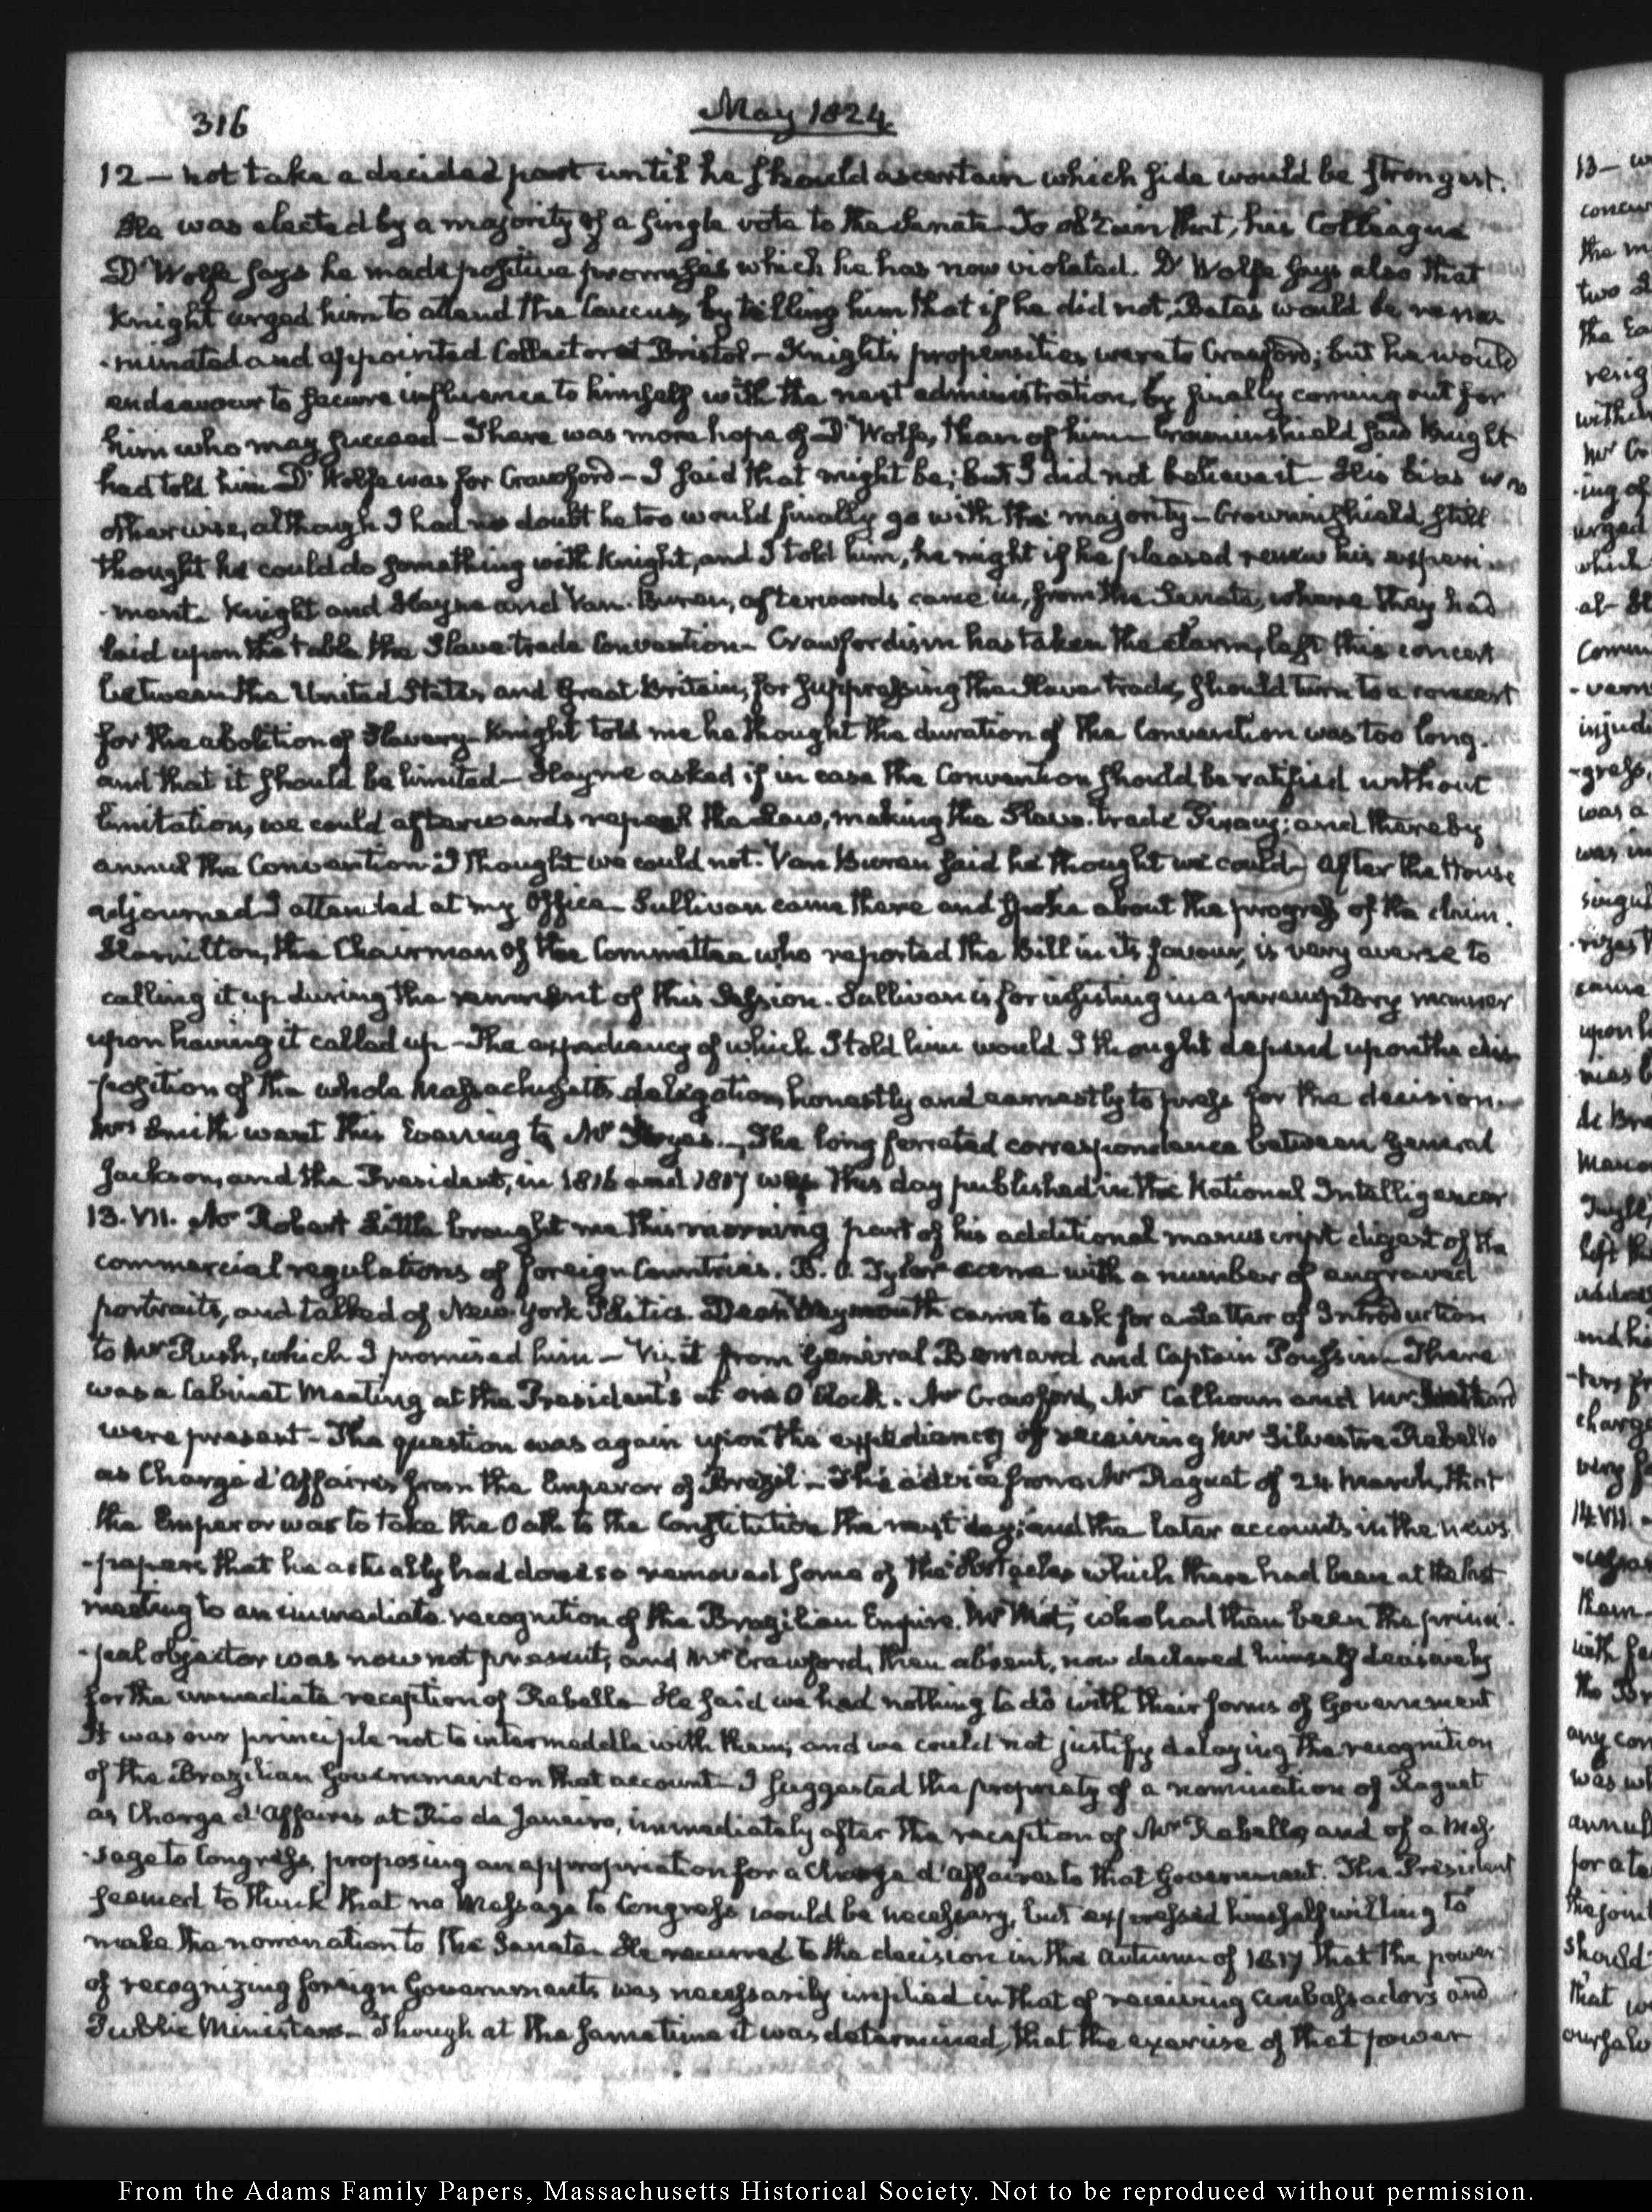 316
May 1824
12 — not take a decided part until he should ascertain which side would be strongest.
He was elected by a majority of a single vote to the Senate. To obtain that, his Colleague
D'Wolfe says he made positive promises which he has now violated. D'Wolfe says also that
Knight urged him to attend the Caucus, by telling him that if he did not, Bates would be reno-
-minated and appointed Collector at Bristol — Knight's propensities were to Crawford; but he would
endeavour to secure influence to himself with the next administration, by finally coming out for
him who may succeed — There was more hope of D'Wolfe, than of him — Crowninshield said Knight
had told him D'Wolfe was for Crawford — I said that might be; but I did not believe it — His bias was
otherwise, although I had no doubt he too would finally go with the majority — Crowninshield still
thought he could do something with Knight, and I told him, he might if he pleased renew his experi-
-ment. Knight and Hayne and Van Buren, afterwards came in, from the Senate, where they had
laid upon the table the Slave trade Convention — Crawfordism has taken the alarm, lest this concert
between the United States and Great Britain, for suppressing the Slave trade, should turn to a concert
for the abolition of Slavery — Knight told me he thought the duration of the Convention was too long.
and that it should be limited — Hayne asked if in case the Convention should be ratified without
limitation, we could afterwards repeal the Law, making the Slave-trade Piracy; and thereby
annul the Convention: I thought we could not. Van Buren said he thought we could — After the House
adjourned I attended at my Office — Sullivan came there and spoke about the progress of the claim.
Hamilton, the Chairman of the Committee who reported the Bill in its favour, is very averse to
calling it up during the remnant of this Session. Sullivan is for insisting in a peremptory manner
upon having it called up — The expediency of which I told him would I thought depend upon the dis-
-position of the whole Massachusetts delegation, honestly and earnestly to press for the decision.
Mrs Smith went this Evening to Mr Noyes. — The long ferreted correspondence between General
Jackson, and the President, in 1816 and 1817 was this day published in the National Intelligencer
13. VII. Mr Robert Little brought me this morning part of his additional manuscript digest of the
commercial regulations of foreign Countries. B. O. Tyler came with a number of engraved
portraits, and talked of New-York Politics. Dean Weymouth came to ask for a Letter of Introduction
to Mr Rush, which I promised him — Visit from General Bernard and Captain Poussin — There
was a Cabinet Meeting at the President's at one O'Clock. Mr Crawford, Mr Calhoun and Mr Southard
were present — The question was again upon the expediency of receiving Mr Silvestre Rebello
as Chargé d'Affaires from the Emperor of Brazil — The advice from Mr Raguet of 24 March, that
the Emperor was to take the Oath to the Constitution the next day; and the later accounts in the news-
-papers that he actually had done so removed some of the obstacles which there had been at the last
meeting to an immediate recognition of the Brazilian Empire. Mr Wirt, who had then been the princi-
-pal objector was now not present, and Mr Crawford, then absent, now declared himself decisively
for the immediate reception of Rebello — He said we had nothing to do with their forms of Government
It was our principle not to intermeddle with them, and we could not justify delaying the recognition
of the Brazilian Government on that account — I suggested the propriety of a nomination of Raguet
as Chargé d'Affaires at Rio de Janeiro, immediately after the reception of Mr Rebello, and of a Mes-
-sage to Congress, proposing an appropriation for a Chargé d'Affaires to that Government. The President
seemed to think that no Message to Congress would be necessary, but expressed himself willing to
make the nomination to the Senate. He recurred to the decision in the Autumn of 1817 that the power
of recognizing foreign Governments was necessarily implied in that of receiving Ambassadors and
Public Ministers — Though at the same time it was determined, that the exercise of that power
From the Adams Family Papers, Massachusetts Historical Society. Not to be reproduced without permission.